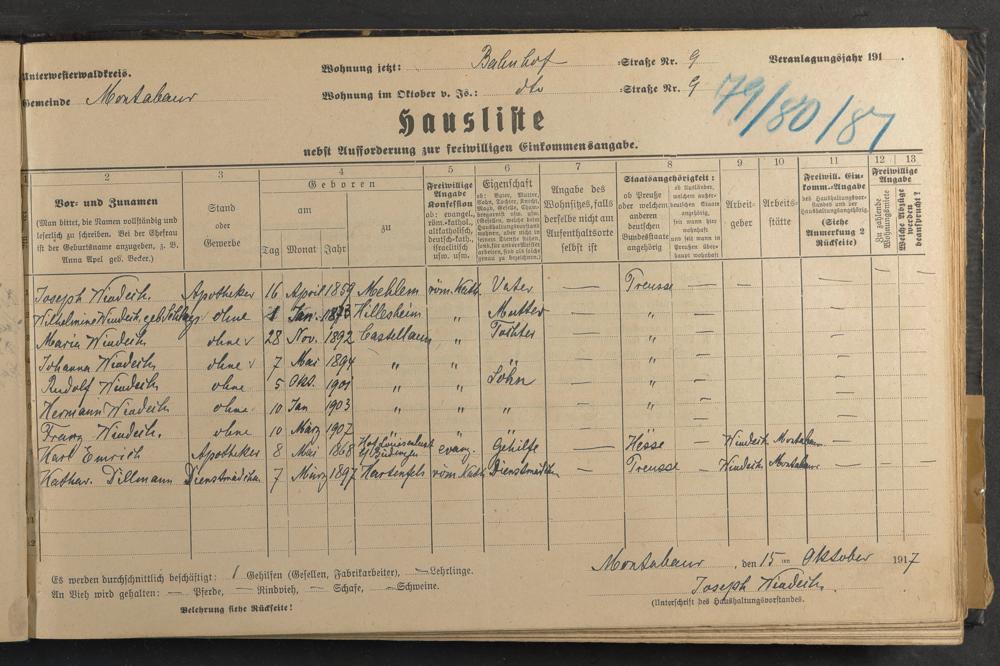 Unterwesterwaldkreis.
Gemeinde Montabaur
Wohnung jetzt: Bahnhof =Straße Nr. 9
Veranlagungsjahr 191 .
Wohnung im Oktober v. Js.: dto =Straße Nr. 9
79/80/87
Hausliste
nebst Aufforderung zur freiwilligen Einkommensangabe.
2 3 4 5 6 7 8 9 10 11 12 13
Vor= und Zunamen
(Man bittet, die Namen vollständig und
leserlich zu schreiben. Bei der Ehefrau
ist der Geburtsname anzugeben, z. B.
Anna Apel geb. Becker.)
Stand
oder
Gewerbe
Geboren
am
Tag Monat Jahr
zu
Freiwillige
Angabe
Konfession
ob: evangel.,
röm.=kathol.,
altkatholisch,
deutsch=kath.,
israelitisch
usw. usw.
Eigenschaft
ob: Vater, Mutter,
Sohn, Tochter, Knecht,
Magd, Geselle, Cham=
bregarnist usw. usw.
Angabe des
Wohnsitzes, falls
derselbe nicht am
Aufenthaltsorte
selbst ist
Staatsangehörigkeit:
ob Preuße
oder welchem
anderen
deutschen
Bundesstaate
angehörig
ob Ausländer,
welchem außer=
deutschen Staate
angehörig,
seit wann hier
wohnhaft
und seit wann in
Preußen über=
haupt wohnhaft
Arbeit=
geber
Arbeits=
stätte
Freiwill. Ein=
komm.=Angabe
des Haushaltungsvor=
standes und der
Haushaltungsangehörig.
(Siehe
Anmerkung 2
Rückseite)
Freiwillige
Angabe
Zu zahlende
Wohnungsmiete
Welche Abzüge
werden
beansprucht?
Joseph Windeck Apotheker 16 April 1859 Mehlem röm. Kath. Vater — Preusse — —
Wilhelmine Windeck geb. ohne 1 Jan. 1873 Hillesheim " Mutter — " — —
Maria Windeck ohne 28 Nov. 1892 Castellaun " Tochter — " — —
Johanna Windeck ohne 7 Mai 1894 " " " — " — —
Rudolf Windeck ohne 5 Okt. 1901 " " Sohn — " — —
Hermann Windeck ohne 10 Jan 1903 " " " — " — —
Franz Windeck. ohne 10 März 1907 " " " — " — —
Karl Emrich Apotheker 8 Mai 1868 Hof Luisenlust b/ Büdingen evang. Gehilfe — Hesse — Windeck Montabaur —
Kathar. Dillmann Dienstmädchen 7 März 1897 Hartenfels röm. Kath. Dienstmädchen — Preusse — Windeck Montabaur —
Es werden durchschnittlich beschäftigt: 1 Gehilfen (Gesellen, Fabrikarbeiter), — Lehrlinge.
An Vieh wird gehalten: — Pferde, — Rindvieh, — Schafe, — Schweine.
Belehrung siehe Rückseite!
Montabaur, den 15 ten Oktober 1917
Joseph Windeck.
(Unterschrift des Haushaltungsvorstandes.